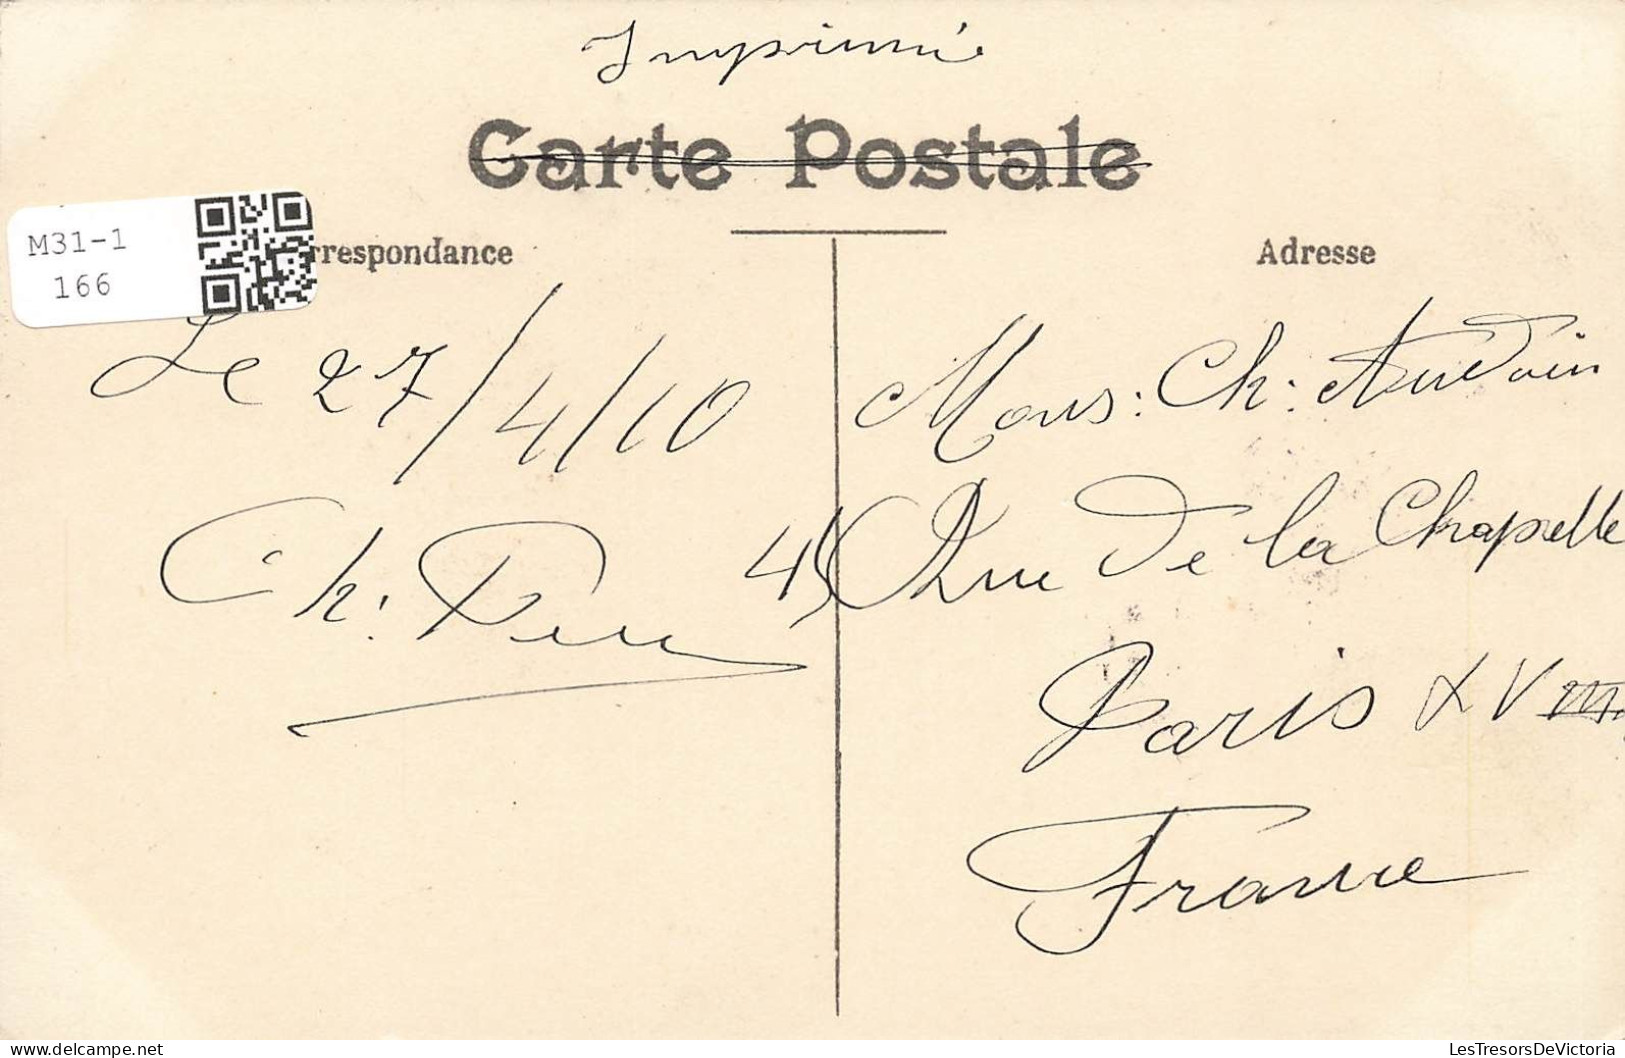 Imprimé
Carte Postale
M31-1
166
rrespondance
Adresse
Le 27/4/10
Ch.
Mons: Ch: Audouin
45 Rue de la Chapelle
Paris XVIII
France
delcampe.net
LesTresorsDeVictoria